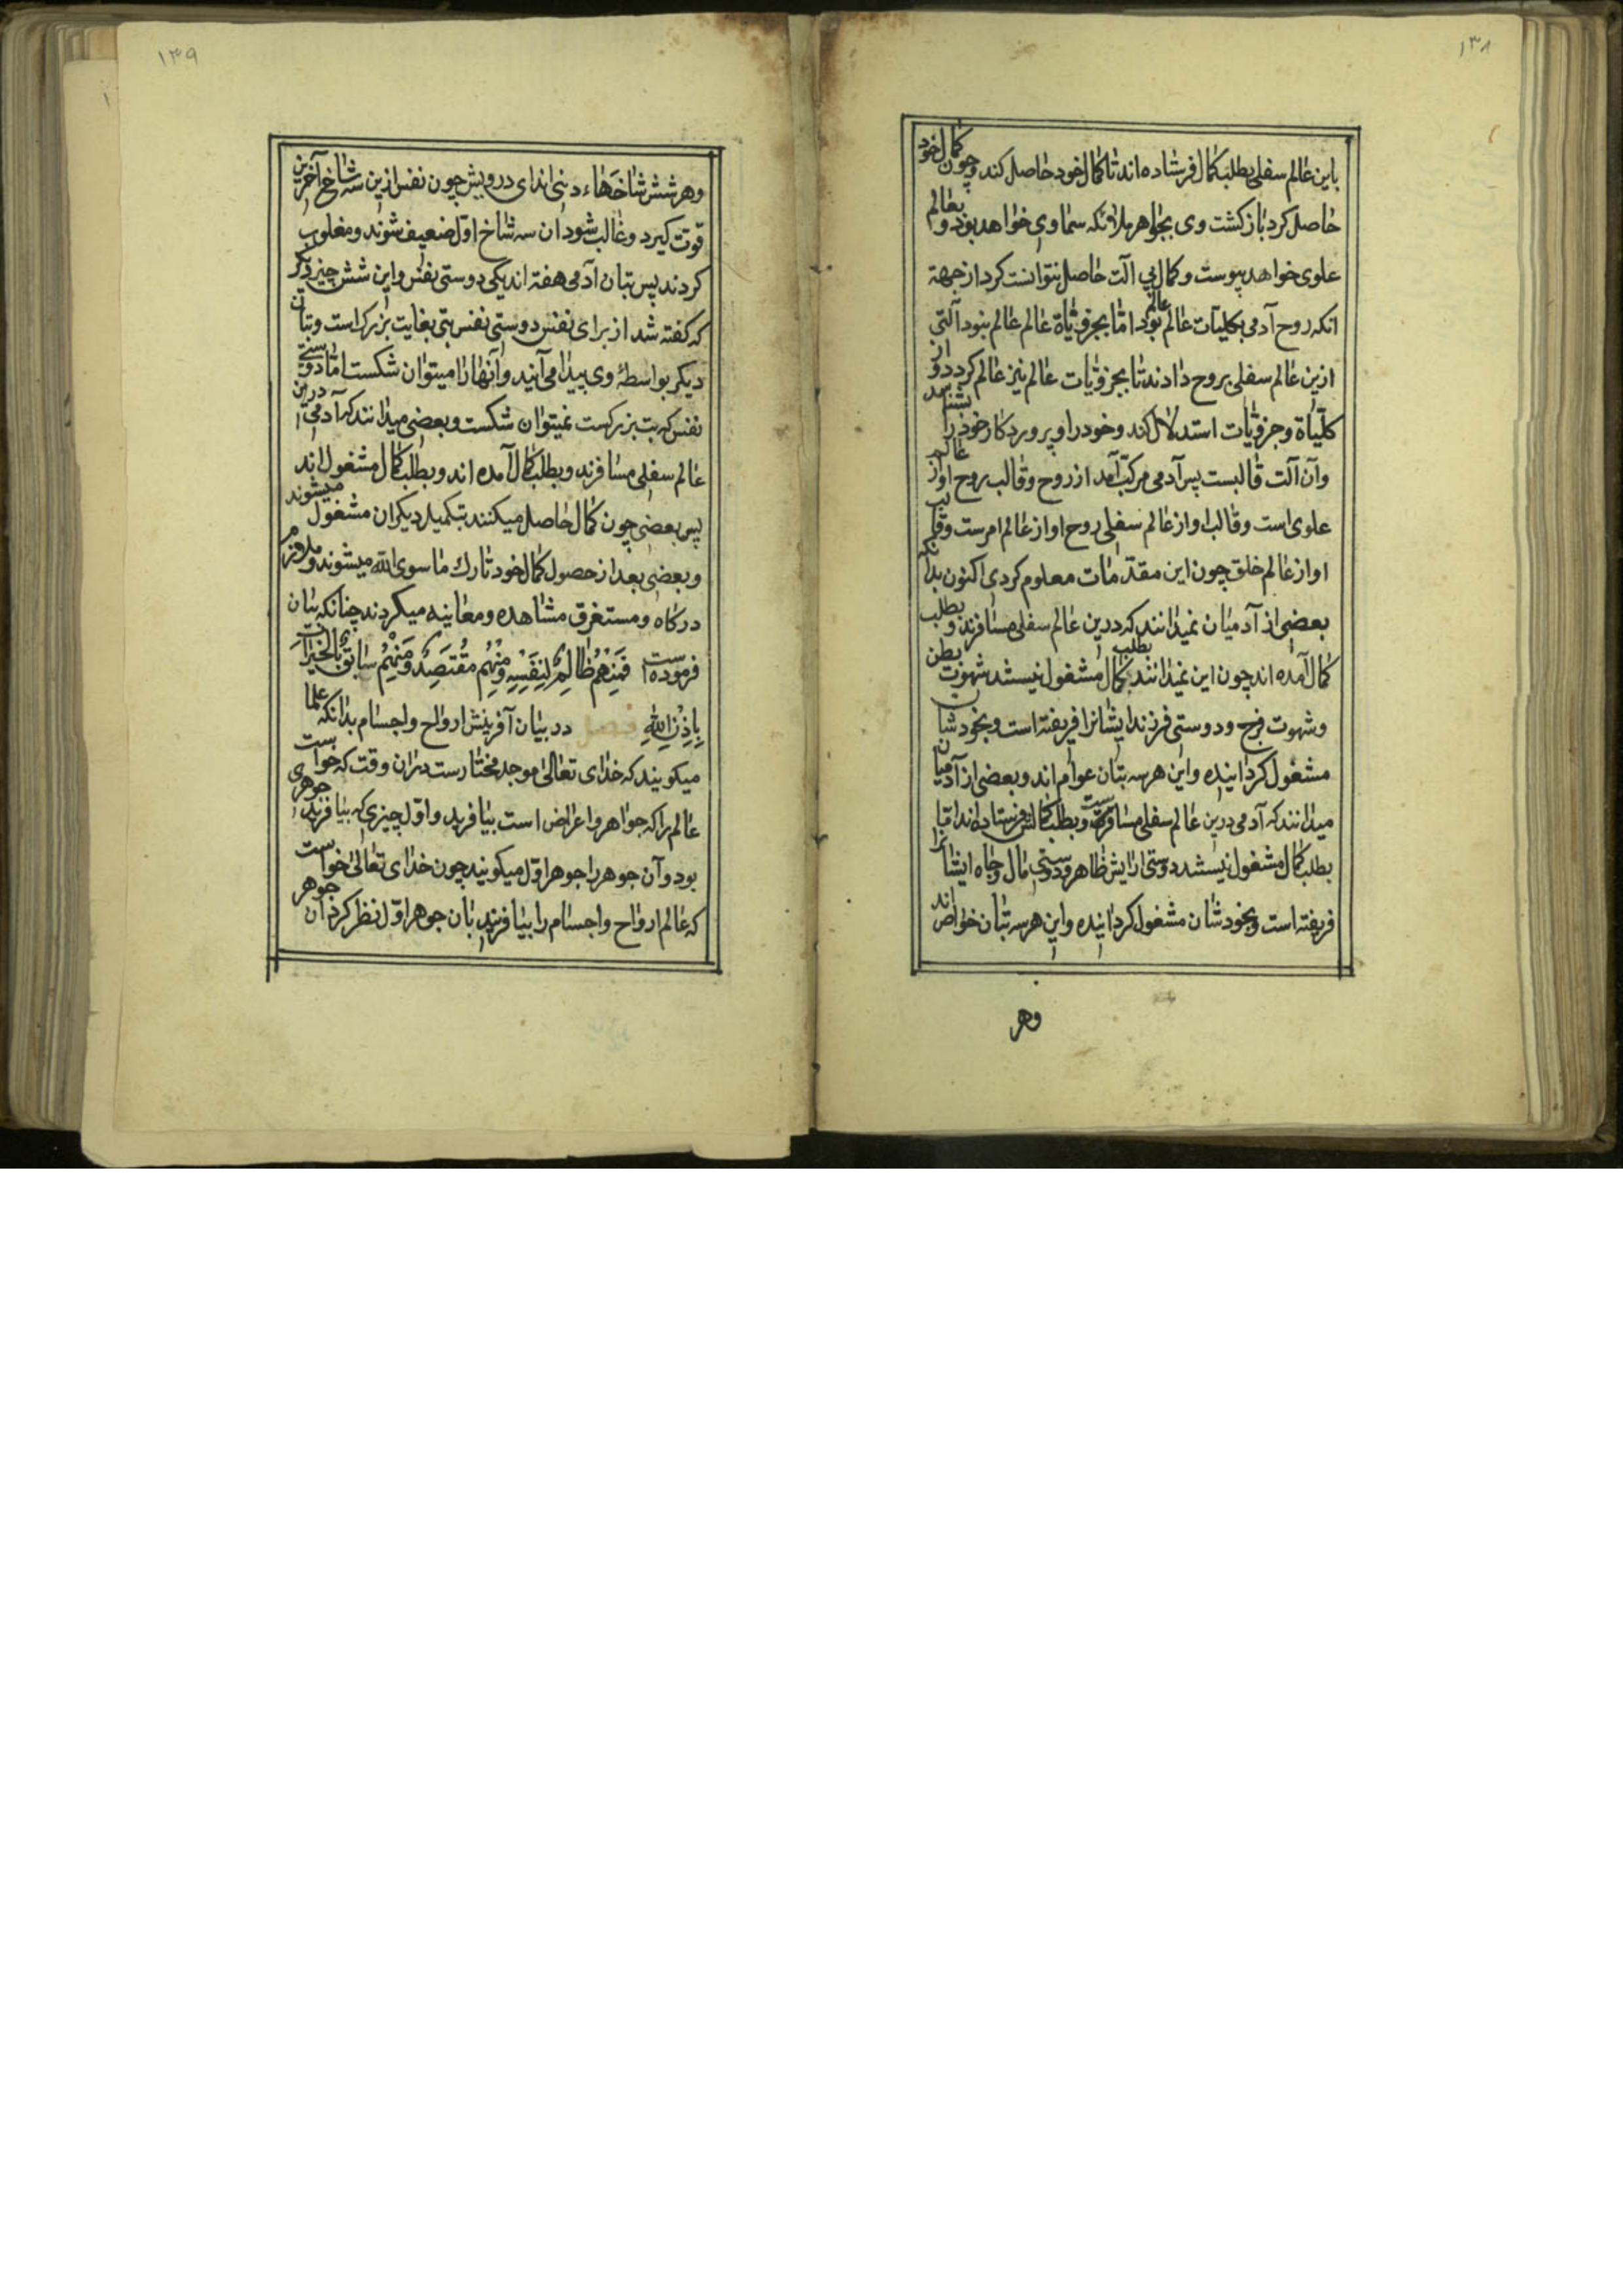 ۱۳۸
باین عالم سفلی بطلب کمال فرستاده اند تا کمال خود حاصل کند و چون کمال خود
حاصل کرد بازگشت وی بجواهر ملائکه سماوی خواهد بود و بعالم
علوی خواهد پیوست و کمال بی آلت حاصل نتوانست کرد از جهة
انکه روح آدمی بکلیات عالم عالم بود اما بجزویاة عالم عالم نبود آلتی
ازین عالم سفلی بروح دادند تا بجزویات عالم نیز عالم کردد و از
کلیاة و جزویات استدلال کند و خود را و پروردکار خود را بشناسد
و آن آلت قالبست پس آدمی مرکب آمد از روح و قالب روح او از عالم
علوی است و قالب او از عالم سفلی روح او از عالم امرست و قالب
او از عالم خلق چون این مقدمات معلوم کردی اکنون بدانکه
بعضی از آدمیان نمیدانند که درین عالم سفلی مسافرند و بطلب
کمال آمده اند چون این نمیدانند بطلب کمال مشغول نیستند شهوت بطن
و شهوت فرج و دوستی فرزند ایشانرا فریفته است و بخود شان
مشغول کردانیده و این هر سه بتان عوام اند و بعضی از آدمیان
میدانند که آدمی درین عالم سفلی مسافرست و بطلب کمالش فرستاده اند اما
بطلب کمال مشغول نیستند دوستی ارایش ظاهر و دوستی مال و جاه ایشانرا
فریفته است و بخود شان مشغول کردانیده و این هر سه بتان خواص اند
وهر
۱۳۹
وهر شش شاخهاء دنی اند ای درویش چون نفس ازین سه شاخ آخرین
قوت کیرد و غالب شود ان سه شاخ اول ضعیف شوند و مغلوب
کردند پس بتان آدمی هفته اند یکی دوستی نفس و این شش چیز دیکر
که کفته شد از برای نفس دوستی نفس بتی بغایت بزرک است و بتان
دیکر بواسطهٔ وی پیدا می آیند و آنها را میتوان شکست اما دوستی
نفس که بت بزرکست نمیتوان شکست و بعضی میدانند که آدمی درین
عالم سفلی مسافرند و بطلب کمال آمده اند و بطلب کمال مشغول اند
پس بعضی چون کمال حاصل میکنند بتکمیل دیکران مشغول میشوند
و بعضی بعد از حصول کمال خود تارک ما سوی الله میشوند و ملازم
درکاه و مستغرق مشاهده و معاینه میکردند چنانکه بیان
فرموده است فَمِنْهُمْ ظَالِمٌ لِنَفْسِهِ وَمِنْهُمْ مُقْتَصِدٌ وَمِنْهُمْ سَابِقٌ بِالْخَيْرَاتِ
بِاِذْنِ اللهِ فصل در بیان آفرینش ارواح و اجسام بدانکه علما
میکویند که خدای تعالی موجد مختارست دران وقت که خواست
عالم را که جواهر و اعراض است بیافرید و اول چیزی که بیافرید جوهری
بود و آن جوهر را جوهر اول میکویند چون خدای تعالی خواست
که عالم ارواح و اجسام را بیافریند بان جوهر اول نظر کرد آن جوهر